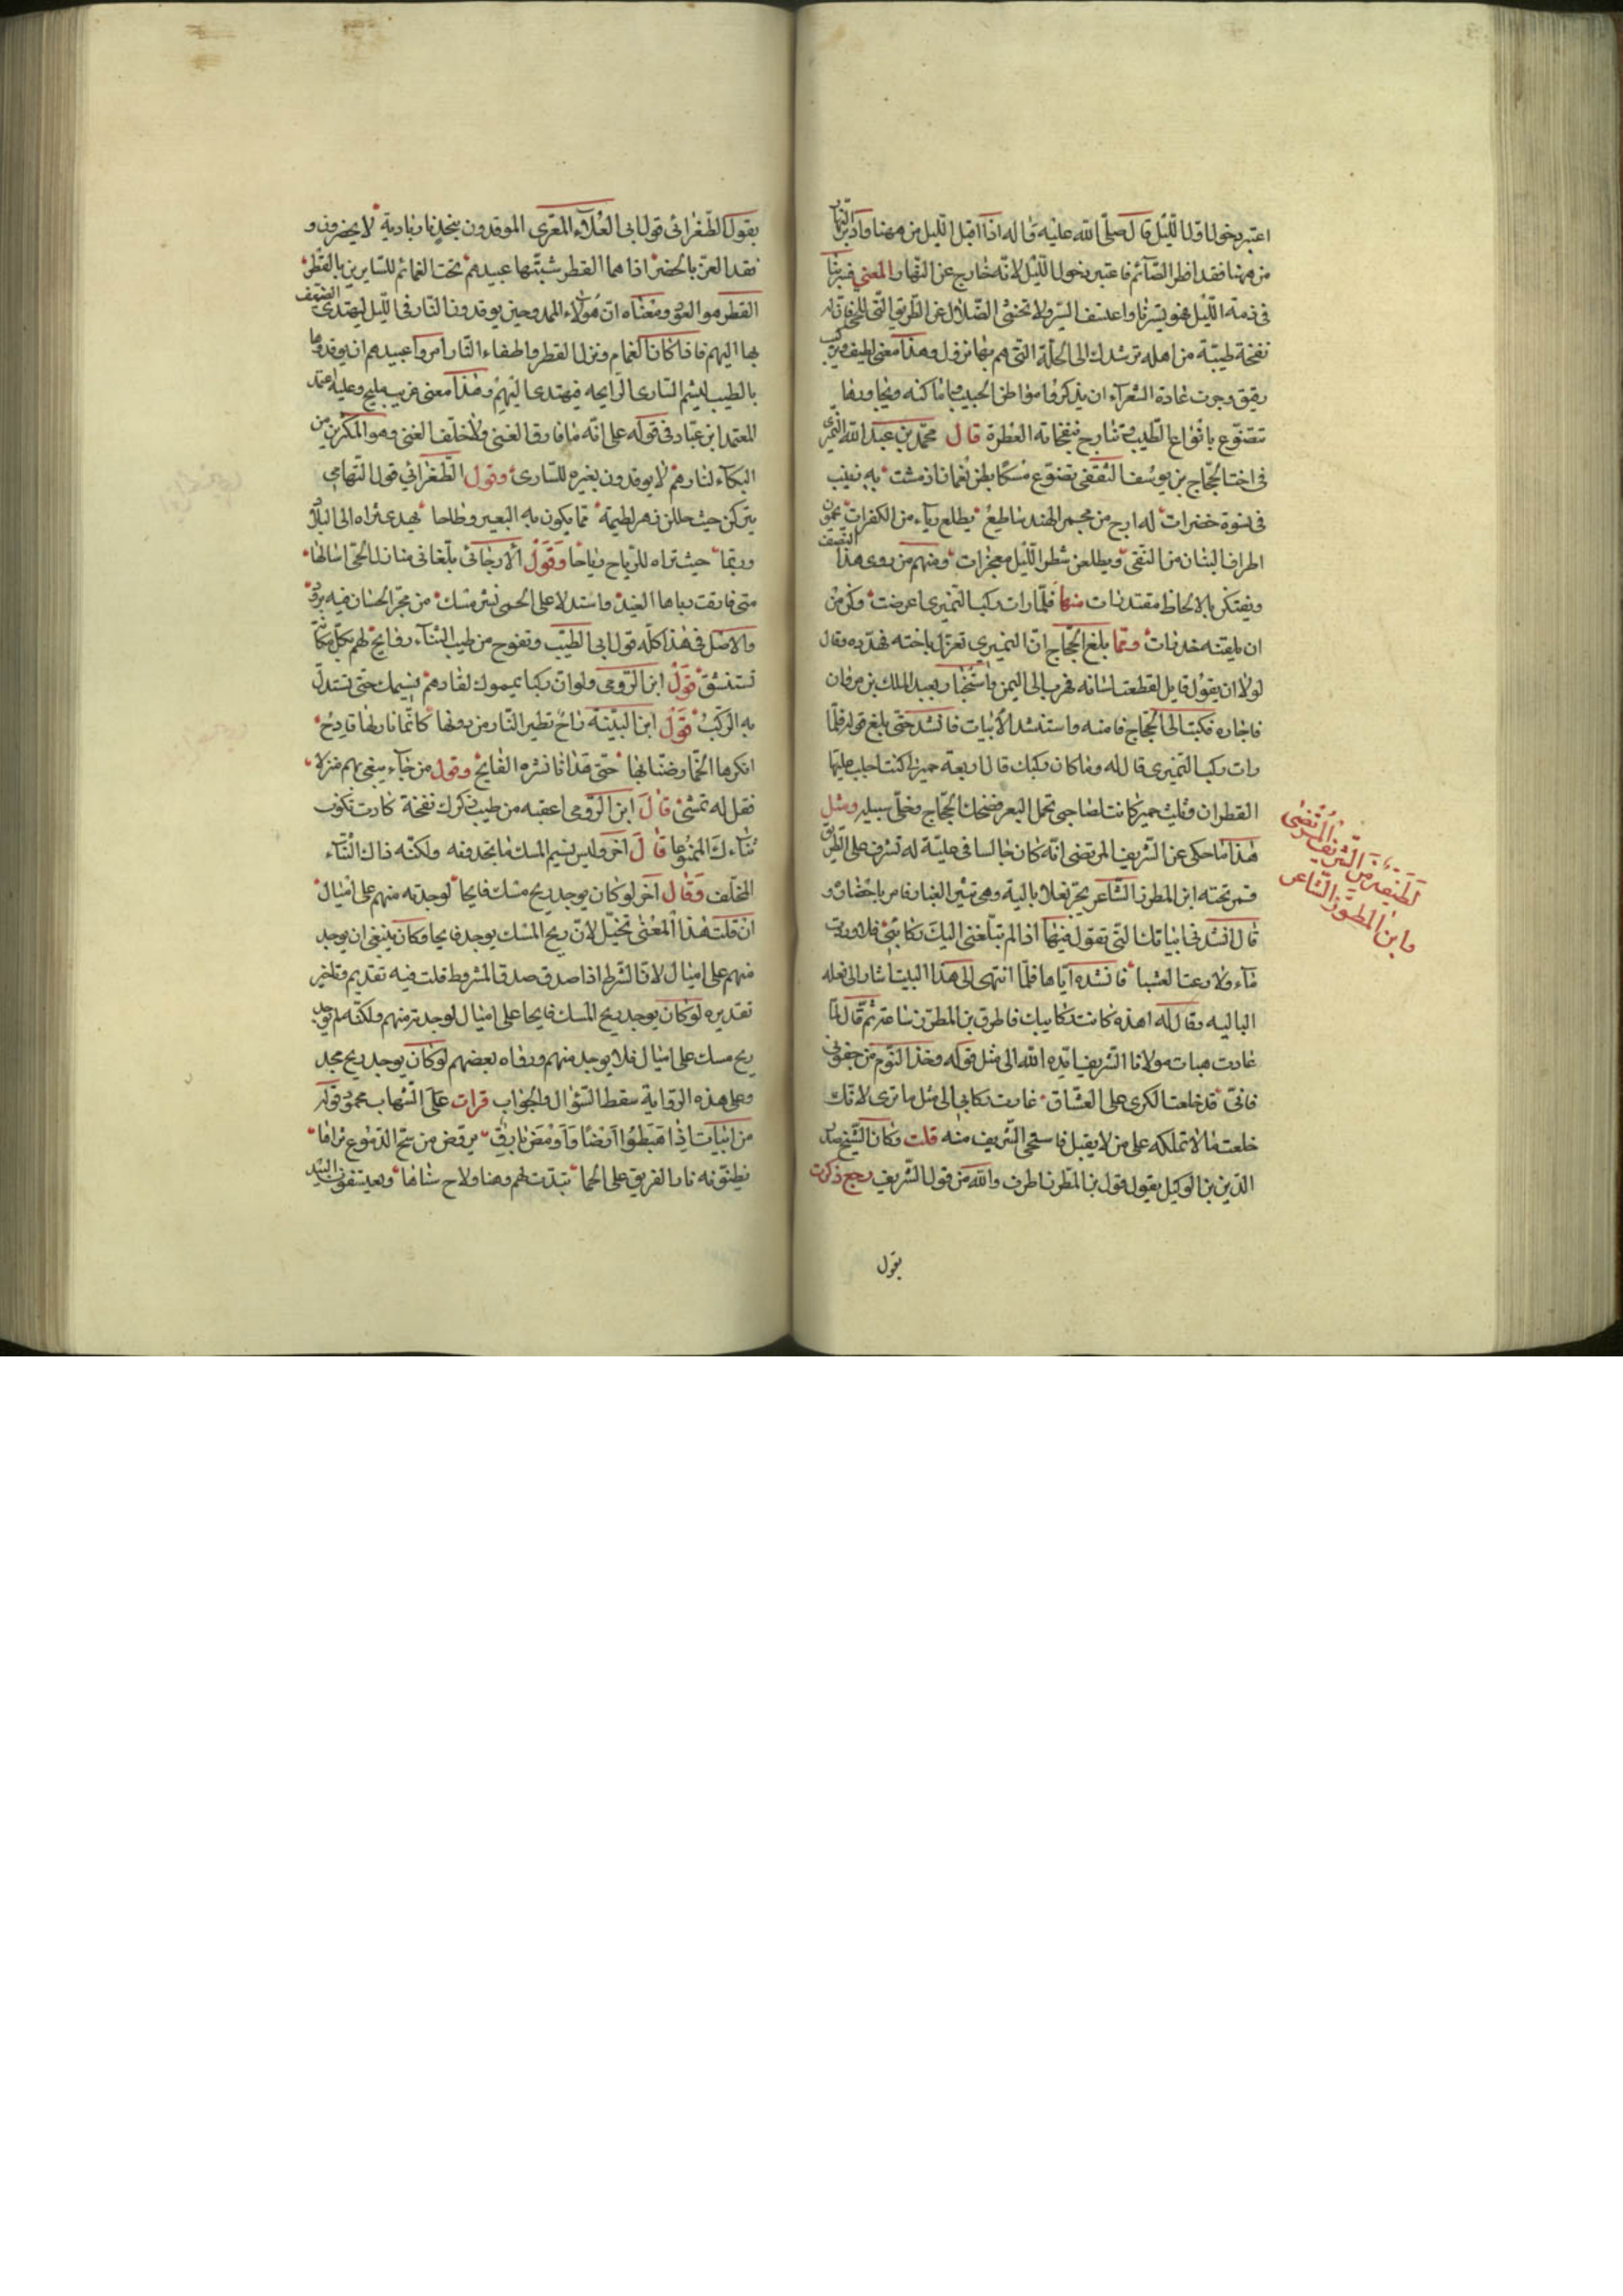 اعتبر دخول اول الليل قال صلى الله عليه وآله اذا اقبل الليل من ههنا وادبر النهار
من ههنا فقد افطر الصائم فاعتبر دخول الليل لانه خارج عن النهار المعنى فسر بنا
فى ذمة الليل هو يسترنا واعتسف السير ولا تخشى الضلال عن الطريق التى للحى فان له
نفخة طيبة من اهله ترشدك الى الحلة التى هم بها نزول وهذا معنى لطيف
رقيق وجرت عادة الشعراء ان يذكروا مواطن الحبيب واماكنه وديارها
تتضوع بانواع الطيب وتتارج بنفحاته العطرة قال محمد بن عبد الله النميرى
فى اخت الحجاج بن يوسف الثقفى تضوع مسكا بطن نعمان اذ مشت به زينب
فى نسوة خضرات له ارج من مجمر الهند ساطع يطلع رياه من الكفرات يخمرن
اطراف البنان من التقى ويطلعن شطر الليل معتجرات ومنهم من روى هذا النصف
ويقتلن بالالحاظ مقتدرات منها فلما رات ركب النميرى اعرضت وكن من
ان يلقينه حذرات ولما بلغ الحجاج ان النميرى تغزل باخته تهدده وقال
لولا ان يقول قايل لقطعت لسانه فهرب الى اليمن واستجار بعبد الملك بن مروان
فاجاره فكتب الى الحجاج فامنه واستنشد الابيات فانشد حتى بلغ قوله فلما
رات ركب النميرى قال له وما كان ركبك قال اربعة حمير لى كنت اجلب عليها
القطران وثلث حمير كانت لصاحبى تحمل البعر فضحك الحجاج وخلى سبيله ومثل
هذا ما حكى عن الشريف المرتضى انه كان جالسا فى علية له تشرف على الطريق
فمر تحته ابن المطرز الشاعر يجر نعلا بالية وهى تثير الغبار فامر باحضاره و
قال انشد فى ابياتك التى تقول فيها اذا لم تبلغنى اليك ركائبى فلا وردت
ماء ولا رعت العشبا فانشده اياها فلما انتهى الى هذا البيت اشار الى نعله
الباليه وقال له اهذه كانت ركايبك فاطرق بن المطرز ساعة ثم قال لما
عادت هبات مولانا الشريف ايده الله الى مثل قوله وخذ النوم من جفونى
فانى قد خلعت الكرى على العشاق عادت ركابى الى مثل ما ترى لانك
خلعت ما لا تملكه على من لا يقبل فاستحى الشريف منه قلت وكان الشيخ صدر
الدين بن الوكيل يقول قول بن المطرز اطرف والله من قول الشريف رجع ذكرت
لطيفة من الشريف المرتضى
وابن المطرز الشاعر
يقول
بقول الطغرائى قول ابى العلاء المعرى الموقدون بنجد نار بادية لا يحضرون و
فقد العز بالحضر اذا هما القطر شبتها عبيدهم تحت الغمائم للسارين بالقطر
القطر هو العود ومعناه ان هؤلاء الممدوحين يوقدون النار فى الليل ليهتدى الضيف
بها اليهم فاذا كان الغمام ونزل القطر والطفاء النار امروا عبيدهم ان يوقدوها
بالطيب ليشم السارى الرايحه فيهتدى اليهم وهذا معنى غريب مليح وعليه اعتمد
المعتمد ابن عباد فى قوله على انه ما فارق الغنى ولا خلف الغنى وهو المكثر من
البكاء لنارهم لا يوقدون بغيره للسارى وقول الطغرائى قول التهامى
يتركن حيث حللن زهر لطيمة مما يكون به البعير وطلحا تهدى ثراه الى البلاد
وربما حيث ثراه للرياح رياحا وقول الارجانى بلغانى منازل الحى اسالها
متى فارقت رباها الغيد واستدلا على الحى نشر مسك من مجر الحسان فيه برود
والاصل فى هذا كله قول ابى الطيب وتفوح من طيب الثناء روايح لهم بكل مكانة
تستنشق قول ابن الرومى ولو ان ركبا يمموك لقادهم نسيمك حتى تستدل
به الركب قول ابن النبيه راح تطير النار من دونها كانما نارلها قادح
انكرها الخمار ضنا بها حتى هدانا نشره الفايح وقول من خباء يبغى بهم منزلا
فقل له تمشى قال ابن الرومى اعقبه من طيب ذكرك نفخة كادت تكون
ثناءك المسموعا قال آخر وليس نسيم المسك ما تجدونه ولكنه ذاك الثناء
المخلف وقال آخر لو كان يوجد ريح مسك فايحا لوجدته منهم على اميال
ان قلت هذا المعنى تخيل لان ريح المسك يوجد فايحا وكان ينبغى ان يوجد
منهم على اميال لان الشرط اذا صدق صدق المشروط قلت فيه تقديم وتاخير
تقديره لو كان يوجد ريح المسك فايحا على اميال لوجدته منهم ولكنه لم يوجد
ريح مسك على اميال فلا يوجد منهم ورواه بعضهم لو كان يوجد ريح مجد
وعلى هذه الرواية سقط السؤال والجواب قرات على الشهاب محمود قوله
من ابيات اذا هبطوا ارضا واومض بارق يرقص من سح الدموع ثراها
يظنونه نار الفريق على الحما تبدت لهم وهنا ولاح سناها ويعتسفون البيد